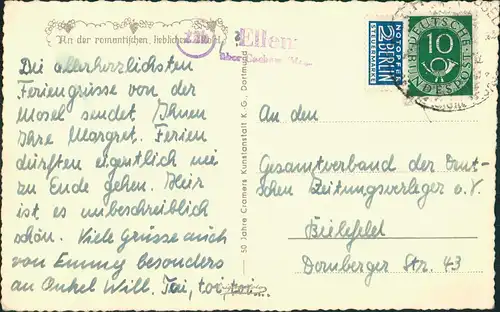 An der romantischen, lieblichen Mosel
Die allerherzlichsten
Feriengrüsse von der
Mosel sendet Ihnen
Ihre Margret. Ferien
dürften eigentlich nie
zu Ende gehen. Hier
ist es unbeschreiblich
schön. Viele Grüsse auch
von Emmy besonders
an Onkel Will. Tai, tai, tai...
50 Jahre Cramers Kunstanstalt K.-G., Dortmund
22b
Ellenz
über Cochem
NOTOPFER
2 BERLIN
STEUERMARKE
DEUTSCHE
10
BUNDESPOST
An den
Gesamtverband der Deut-
schen Zeitungsverleger e.V.
Bielefeld
Dornberger Str. 43